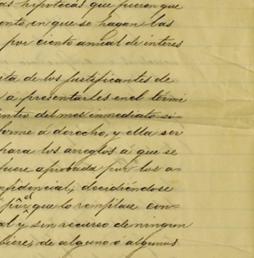 as hipotecas que fueron que
ento, en que se hagan las
por ciento anual de interes
ita de los justificantes de
á presentarles en el térmi
dentro del mes inmediato si
forme á derecho, y ella ser
para los arreglos á que se
fuere aprobada por los a
nfidencial, decidiéndose
que lo remplace con
al y sin recurso de ningun
bieres de alguno o algunos